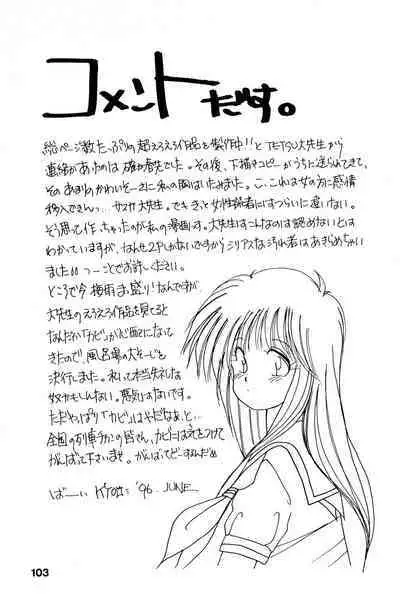 コメントだす。
総ページ数たっぷりの超えろえろ作品を製作中!!とTETSU大先生から
連絡があったのは確か春先でした。その後、下描きコピーがうちに送られてきて、
そのあまりのかわいそーさに私の胸はいたみました。こ、これは女の方に感情
移入できんっ…サスガ大先生。できると女性読者にはつらいに違いない。
そう思って作っちゃったのが私の漫画です。大先生はこんなのは認めないとは
わかっていますが、なんせ2Pしかないですからシリアスな汚れ者はあきらめちゃい
ました!! つーことでお許しください。
ところで今梅雨まっ盛り!なんですが、
大先生のえろえろ作品を見てると
なんだか「カビ」が心配になって
きたので、風呂場の大そーじを
決行しました。私って本当失礼な
奴かもしんない。悪気はないです。
ただやっぱり「カビ」はやだなあ、と…
全国の列車チカンの皆さん、カビには気をつけて
がんばって下さいませ。がんばってどーすんだ!!
ばーい '96. JUNE
103